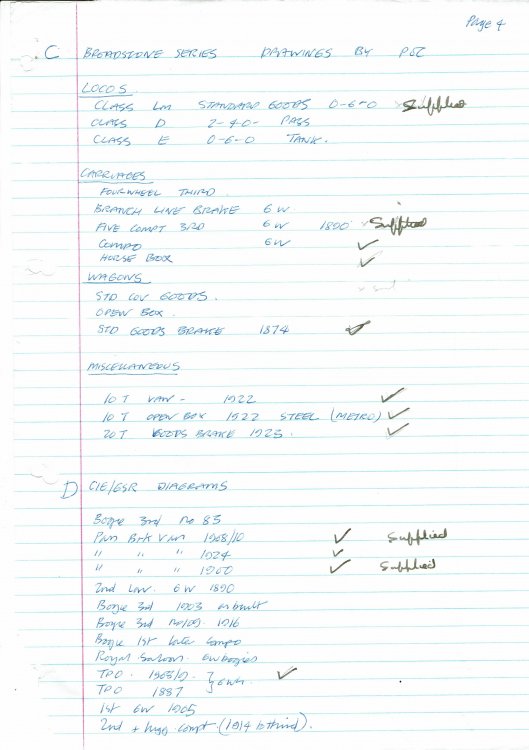 Page 4
C BROADSTONE SERIES DRAWINGS BY
LOCOS
CLASS Lm STANDARD GOODS 0-6-0 Supplied
CLASS D 2-4-0- PASS
CLASS E 0-6-0 TANK.
CARRIAGES
FOURWHEEL THIRD
BRANCH LINE BRAKE 6W
FIVE COMPT 3RD 6W 1890 Supplied
COMPO 6W ✓
HORSE BOX ✓
WAGONS
STD COV GOODS.
OPEN BOX.
STD GOODS BRAKE 1874 ✓
MISCELLANEOUS
10 T VAN - 1922 ✓
10 T OPEN BOX 1922 STEEL (METRO) ✓
20 T GOODS BRAKE 1923. ✓
D CIE/GSR DIAGRAMS
Bogie 3rd no 85
Pass Brk Van 1908/10 ✓ Supplied
" " " 1924 ✓
" " " 1900 ✓ Supplied
2nd Lav. 6W 1890
Bogie 3rd 1903 as built
Bogie 3rd 1916
Bogie 1st later compo
Royal Saloon. 6w bogies
TPO. 1908/9. ✓
TPO 1887 } 6wh.
1st 6W 1905
2nd + lugg compt (1914 to third).